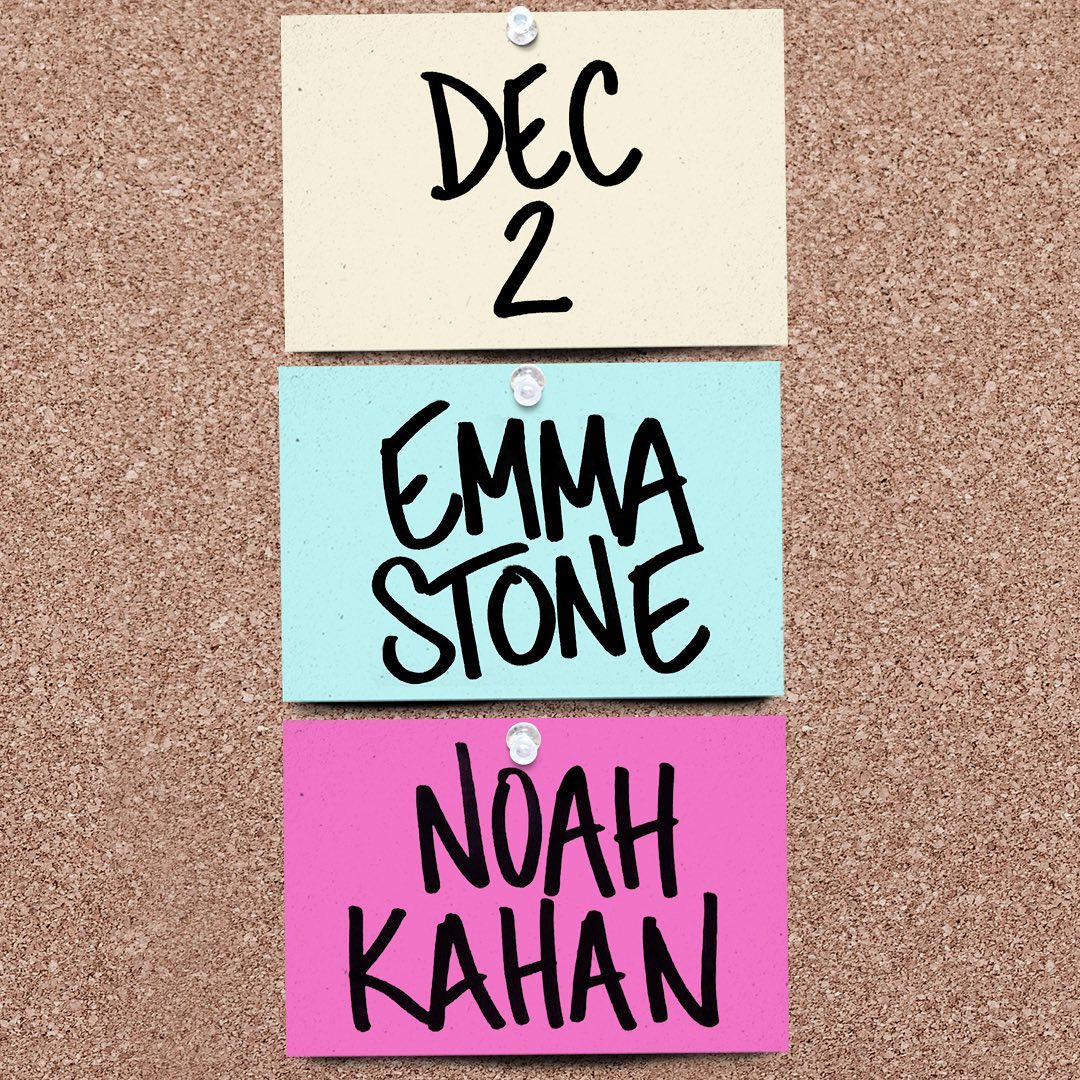 DEC
2
EMMA
STONE
NOAH
KAHAN